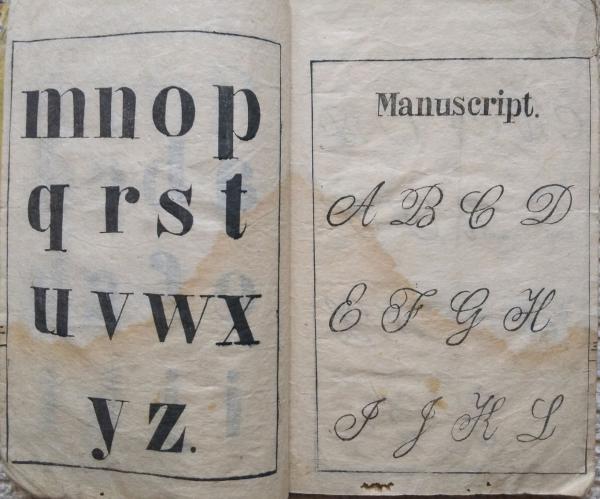 m n o p
q r s t
u v w x
y z.
Manuscript.
A B C D
E F G H
I J K L